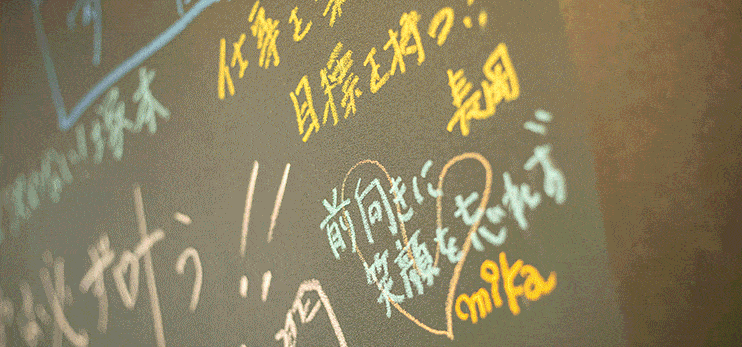 仕事を
目標を持つ!!
長岡
塚本
必ず叶う!!
前向きに
笑顔を忘れずに
mika